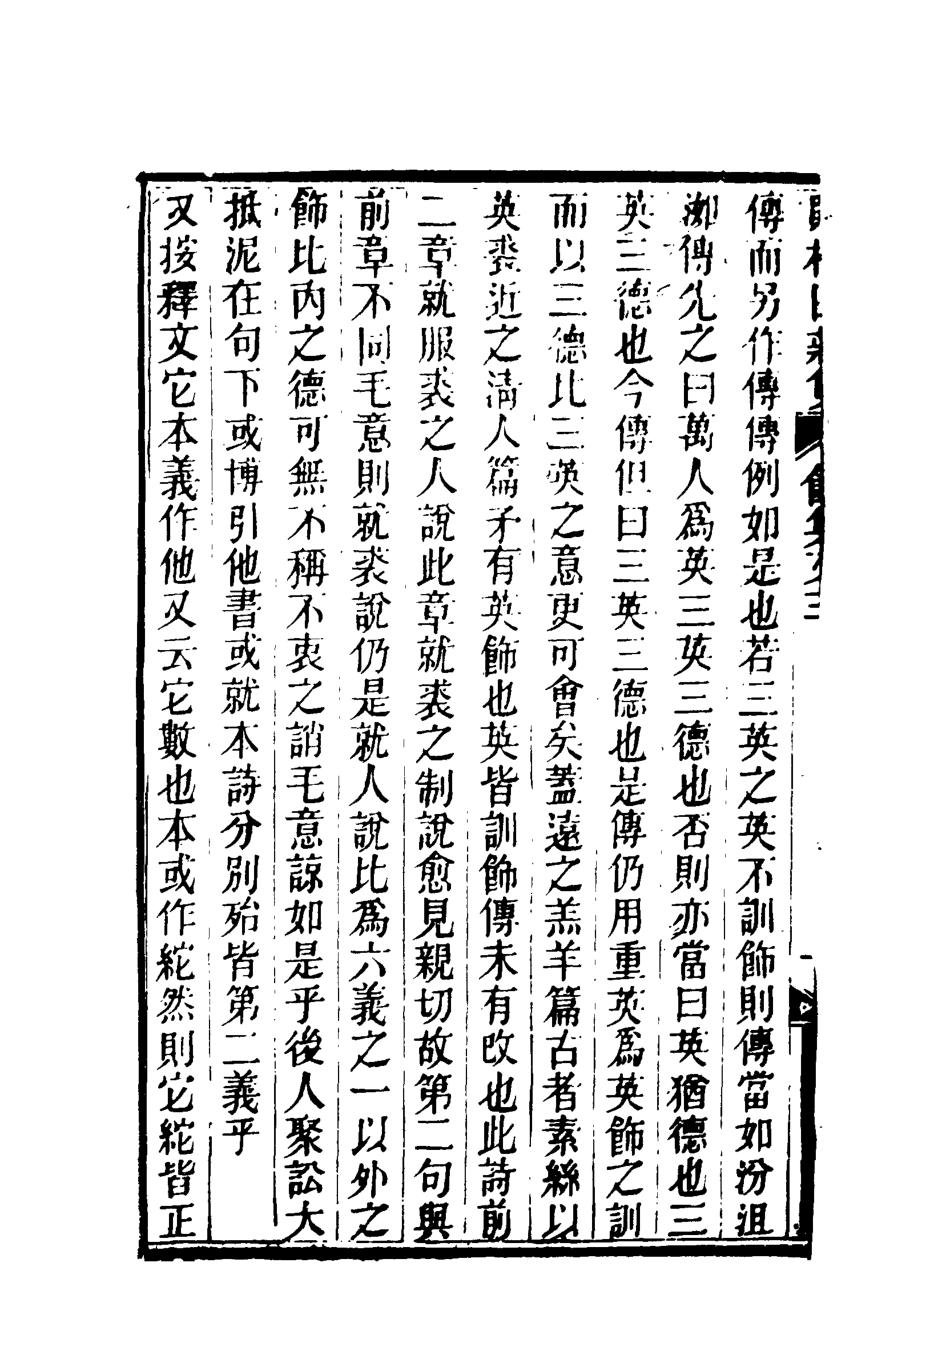 傳而另作傳傳例如是也若三英之英不訓飾則傳當如汾沮
洳傳先之曰萬人爲英三英三德也否則亦當曰英猶德也三
英三德也今傳但曰三英三德也是傳仍用重英爲英飾之訓
而以三德比三英之意更可會矣蓋遠之羔羊篇古者素絲以
英裘近之清人篇矛有英飾也英皆訓飾傳未有改也此詩前
二章就服裘之人說此章就裘之制說愈見親切故第二句與
前章不同毛意則就裘說仍是就人說比爲六義之一以外之
飾比內之德可無不稱不衷之誚毛意諒如是乎後人聚訟大
抵泥在句下或博引他書或就本詩分別殆皆第二義乎
又按釋文它本義作他又云它數也本或作紽然則它紽皆正